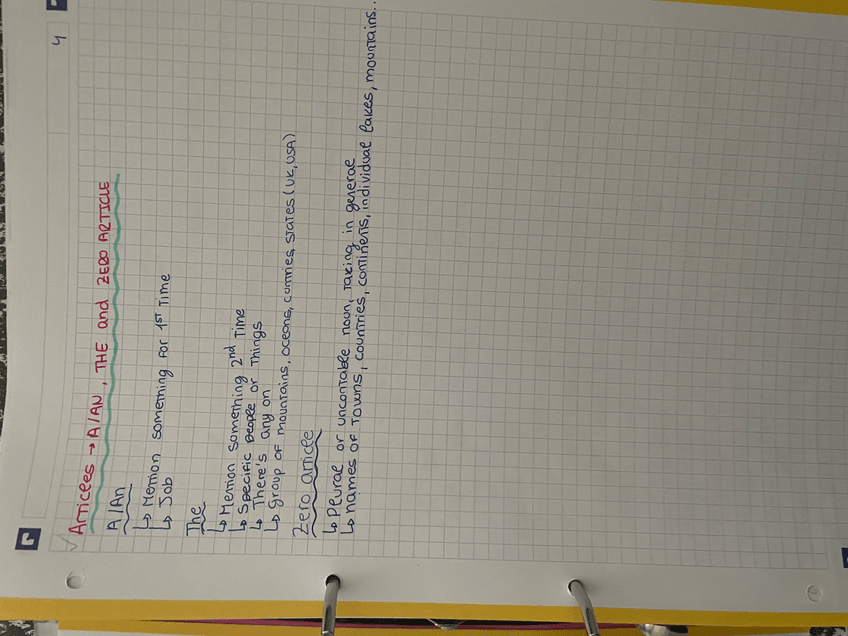 4
Articles → A/AN, THE and ZERO ARTICLE
A/An
↳ Mention something for 1st Time
↳ Job
The
↳ Mention something 2nd Time
↳ Specific people or Things
↳ There's any on
↳ group of mountains, oceans, contries, states (UK, USA)
Zero article
↳ Plural or uncontable noun, Taking in general
↳ names of Towns, countries, continents, individual lakes, mountains..